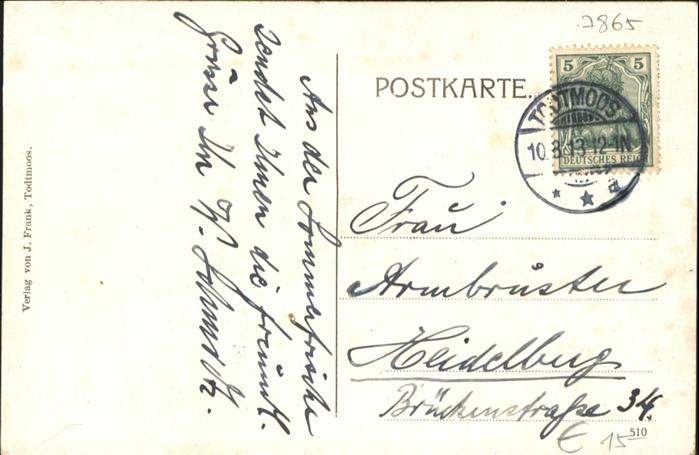 7865
POSTKARTE.
5 5
DEUTSCHES REICH
TODTMOOS
10.8.13.12-1N
a
Frau
Armbruster
Heidelberg
Brückenstraße 34.
€ 15
510
Aus der Sommerfrische
sendet Ihnen die freundl.
Grüsse Ihr K. Schmidt.
Verlag von J. Frank, Todtmoos.